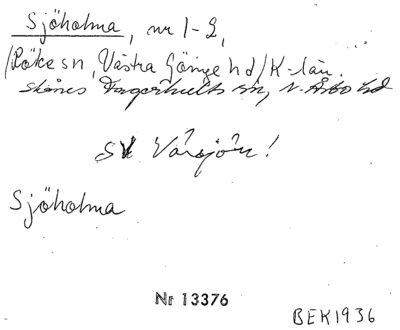 Sjöholma, nr 1-2,
/Röke sn, Västra Göinge hd/K-län.
Skånes Fagerhults sn, N. Åsbo hd
SV Vårsjön!
Sjöholma
Nr 13376
BEK1936